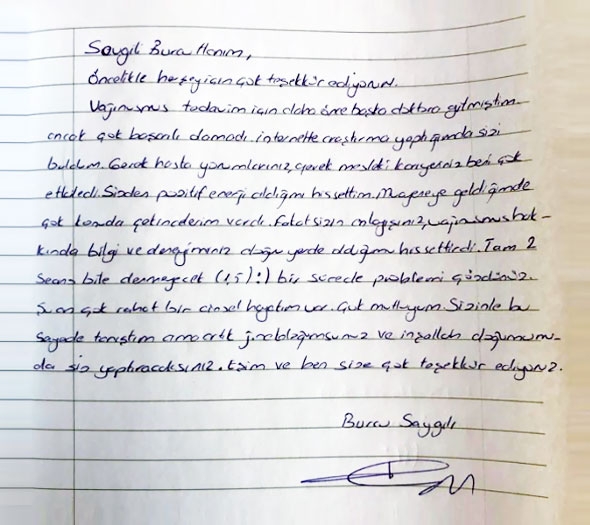 Saygılı Burcu Hanım,
Öncelikle herşey için çok teşekkür ediyorum.
Vajinusmus tedavim için daha önce başka doktora gitmiştim
ancak çok başarılı olamadı. internette araştırma yaptığımda sizi
buldum. Gerek hasta yorumlarınız, gerek mesleki kariyeriniz beni çok
etkiledi. Sizden pozitif enerji aldığımı hissettim. Muayeneye geldiğimde
çok konuda çekincelerim vardı. Fakat sizin anlayışınız, vajinusmus hak-
kında bilgi ve deneyiminiz doğru yerde olduğumu hissettirdi. Tam 2
Seans bile demeyecek (1,5) :) bir sürede problemi çözdünüz.
Şu an çok rahat bir cinsel hayatım var. Çok mutluyum. Sizinle bu
sayede tanıştım ama artık jinekoloğumsunuz ve inşallah doğumumu-
da siz yaptıracaksınız. Eşim ve ben size çok teşekkür ediyoruz.
Burcu Saygılı